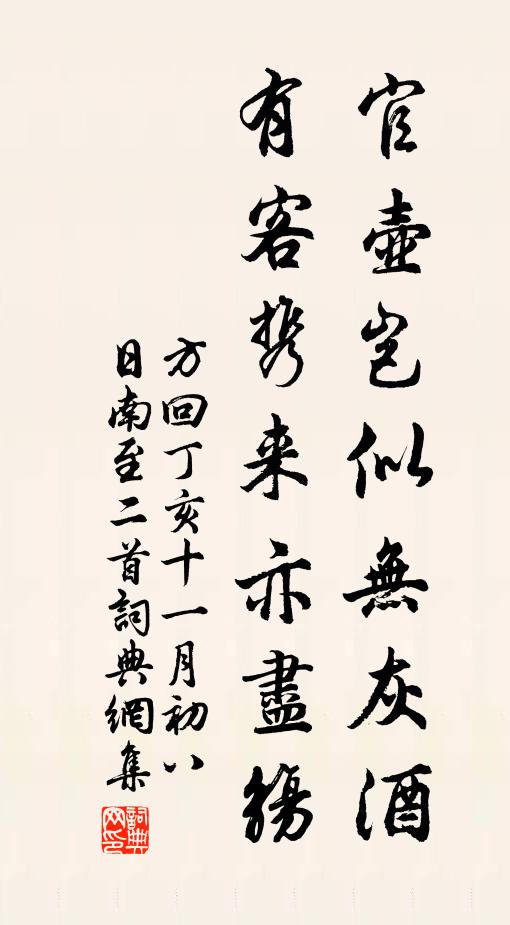 官壺豈似無灰酒
有客携来亦盡觴
方回丁亥十一月初八
日南至二首詞典網集
詞典網印